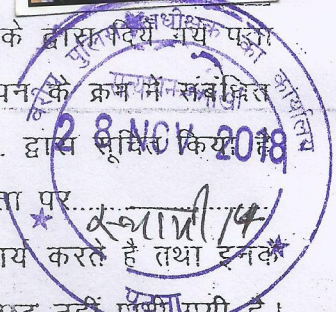 के द्वारा दिये गये पता
पन के क्रम में संबंधित
. द्वारा सूचित किया है
ता पर स्थायी
र्य करते है तथा इनके
नहीं गयी है।
वरीय पुलिस अधीक्षक का कार्यालय
28 NOV 2018
पटना